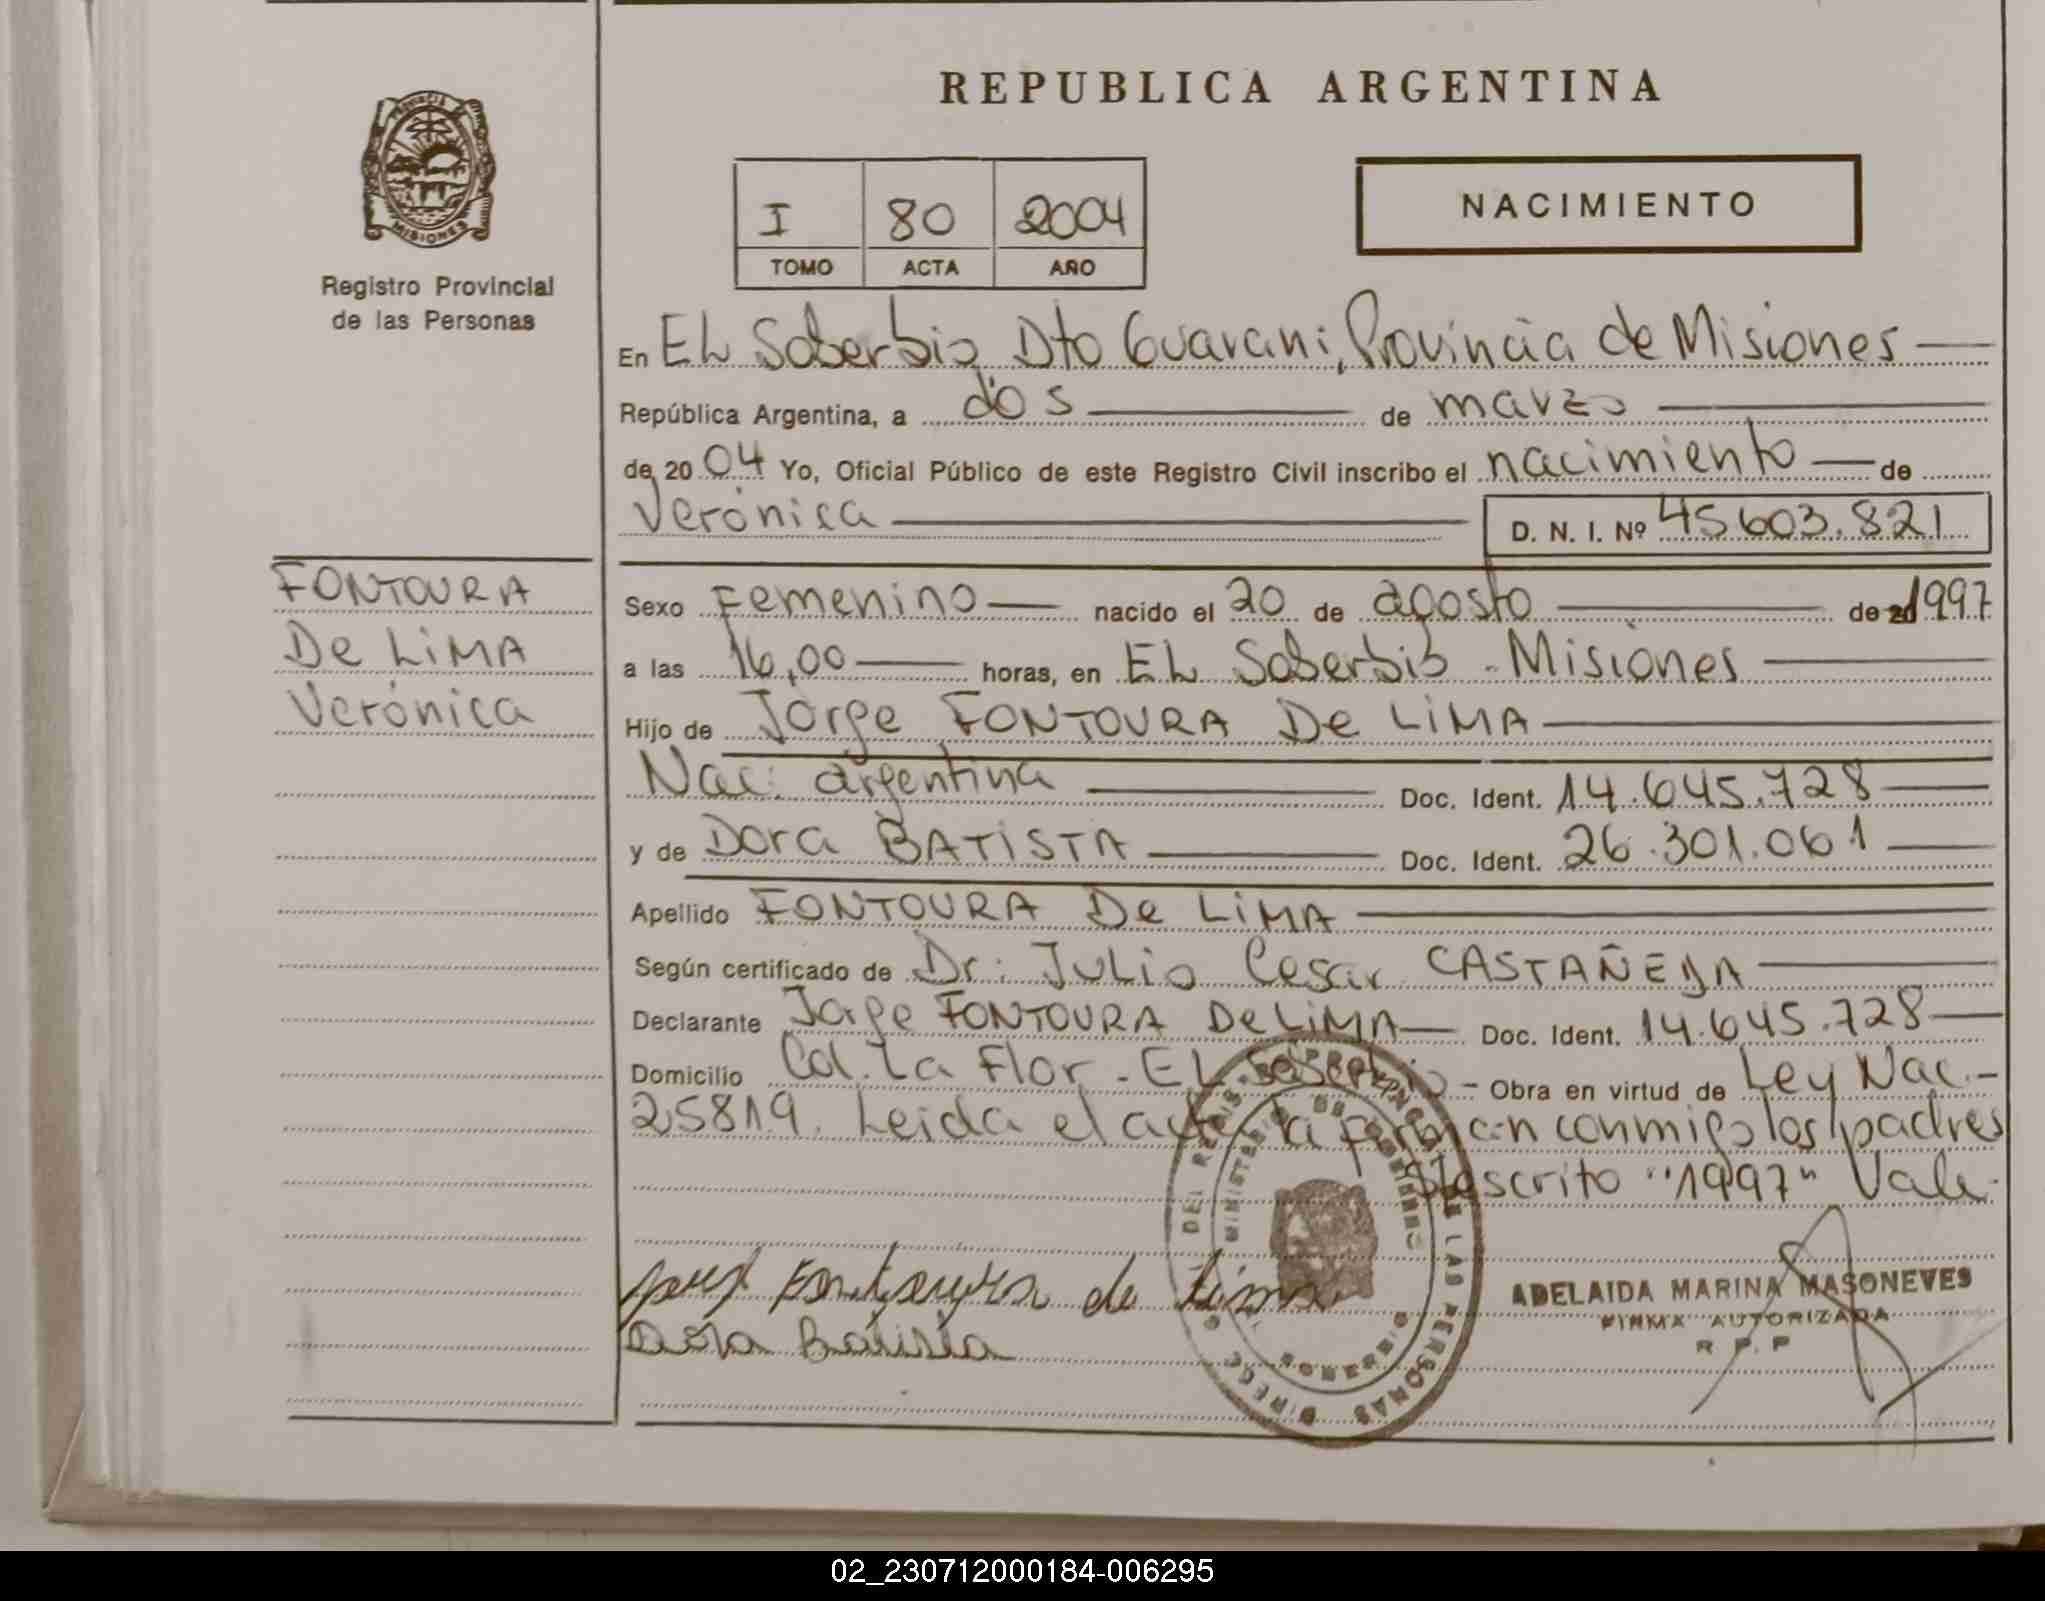 REPUBLICA ARGENTINA
PROVINCIA DE
MISIONES
Registro Provincial
de las Personas
I 80 2004
TOMO ACTA AÑO
NACIMIENTO
En EL Soberbio Dto Guaraní, Provincia de Misiones
República Argentina, a dos de marzo
de 2004 Yo, Oficial Público de este Registro Civil inscribo el nacimiento de
Verónica D. N. I. Nº 45603.821
FONTOURA
De LiMA
Verónica
Sexo Femenino nacido el 20 de agosto de 20 1997
a las 16,00 horas, en EL Soberbio - Misiones
Hijo de Jorge FONTOURA De LiMA
Nac: argentina Doc. Ident. 14.645.728
y de Dora BATiSTA Doc. Ident. 26.301.061
Apellido FONTOURA De LiMA
Según certificado de Dr: Julio Cesar CASTAÑEDA
Declarante Jorge FONTOURA De LiMA Doc. Ident. 14.645.728
Domicilio Col. La Flor - EL Soberbio - Obra en virtud de Ley Nac.-
25819. Leida el acta la firman conmigo los padres
S/escrito "1997" Vale.
Fontoura de Lima
Dora Batista
ADELAIDA MARINA MASONEVES
FIRMA AUTORIZADA
R. P. P
DEL REGIS PROVINCIAL DE LAS PERSONAS DIREC
MINISTERIO DE GOBIERNO
02_230712000184-006295